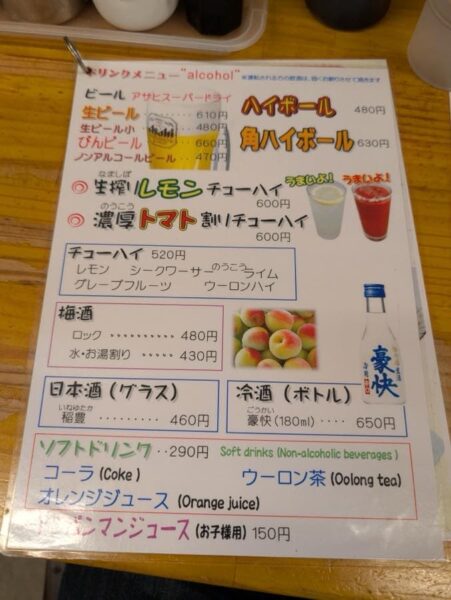 ドリンクメニュー "alcohol" ※運転される方の飲酒は、固くお断りさせて頂きます
ビール アサヒスーパードライ
生ビール 610円
生ビール小 480円
びんビール 660円
ノンアルコールビール 470円
Asahi
ハイボール 480円
角ハイボール 630円
なましぼ
生搾りレモンチューハイ
600円
のうこう
濃厚トマト割りチューハイ
600円
うまいよ! うまいよ!
チューハイ 520円
レモン シークワーサー のうこうライム
グレープフルーツ ウーロンハイ
梅酒
ロック ・・・・・・・・・・ 480円
水・お湯割り ・・・・ 430円
日本酒(グラス)
いねゆたか
稲豊 ・・・・・・・・・ 460円
冷酒(ボトル)
ごうかい
豪快(180ml) ・・・・ 650円
豪快
ソフトドリンク ・・290円 Soft drinks (Non-alcoholic beverages)
コーラ (Coke) ウーロン茶 (Oolong tea)
オレンジジュース (Orange juice)
パンマンジュース (お子様用) 150円